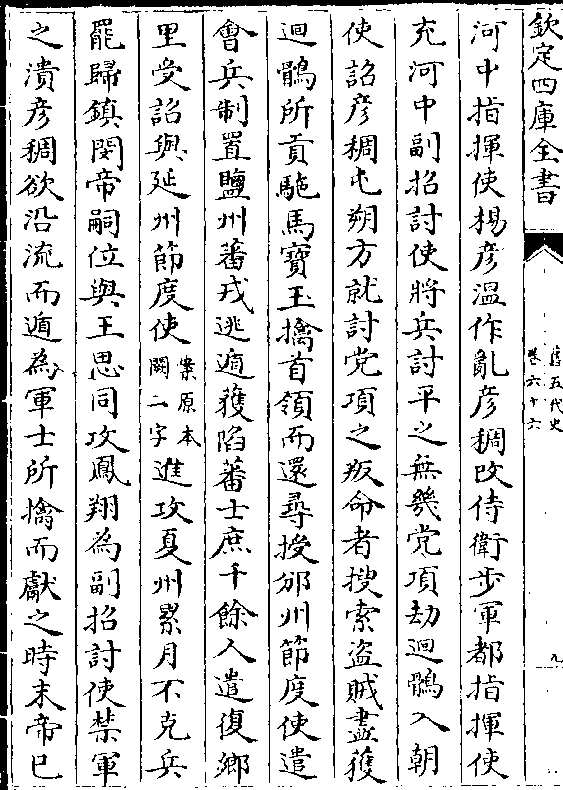 欽定四庫全書
舊五代史
卷六十六
九
河中指揮使楊彦溫作亂彦稠改侍衛步軍都指揮使
充河中副招討使將兵討平之無幾党項劫迴鶻入朝
使詔彦稠屯朔方就討党項之叛命者搜索盜賊盡獲
迴鶻所貢駞馬寶玉擒首領而還尋授邠州節度使遣
會兵制置鹽州蕃戎逃遁獲陷蕃士庶千餘人遣復鄉
里受詔與延州節度使案原本闕二字進攻夏州累月不克兵
罷歸鎮閔帝嗣位與王思同攻鳳翔為副招討使禁軍
之潰彦稠欲沿流而遁為軍士所擒而獻之時末帝已